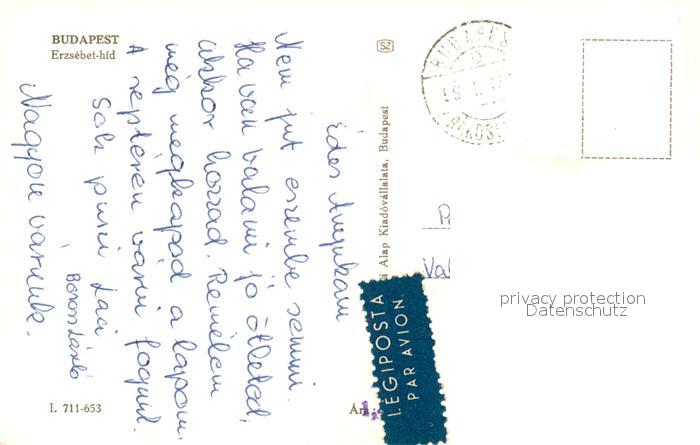 BUDAPEST
Erzsébet-híd
Édes Anyukám
Nem jut eszembe semmi.
Ha van valami jó ötleted,
akkor hozzad. Remélem
még megkapod a lapom.
A reptéren várni fogunk.
Sok puszi Laci
Boross László
Nagyon várunk.
I. 711-653
SZ
i Alap Kiadóvállalata, Budapest
Ára:
LÉGIPOSTA
PAR AVION
BUDAPES
privacy protection
Datenschutz